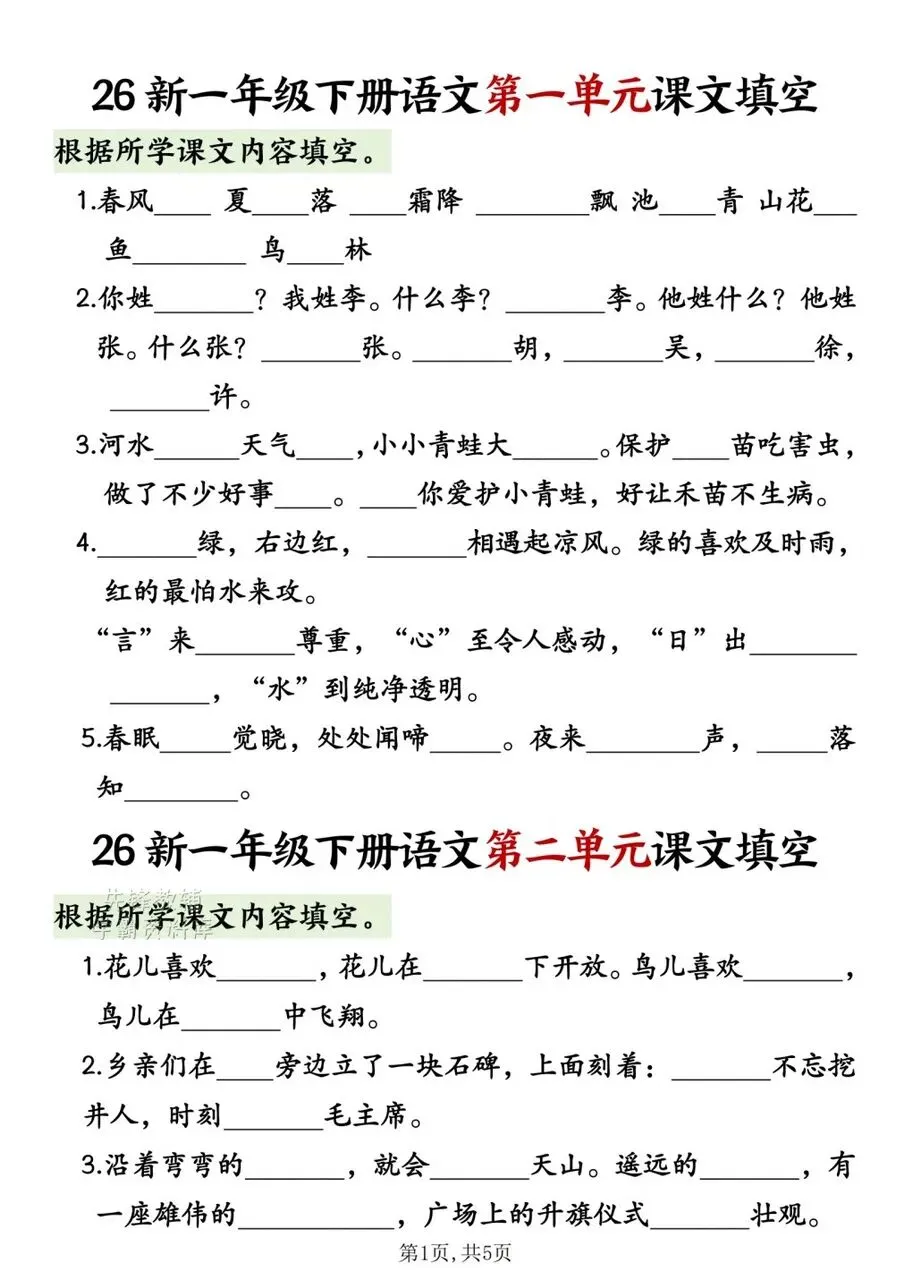 26 新一年级下册语文第一单元课文填空
根据所学课文内容填空。
1.春风____ 夏____落 ____霜降 ________飘 池____青 山花___
鱼________ 鸟____林
2.你姓_______？我姓李。什么李？_______李。他姓什么？他姓
张。什么张？_______张。_______胡，_______吴，_______徐，
_______许。
3.河水______天气____,小小青蛙大______。保护____苗吃害虫，
做了不少好事____。____你爱护小青蛙，好让禾苗不生病。
4._______绿，右边红，_______相遇起凉风。绿的喜欢及时雨，
红的最怕水来攻。
“言”来_______尊重，“心”至令人感动，“日”出________
_______，“水”到纯净透明。
5.春眠_____觉晓，处处闻啼_____。夜来________声，_____落
知________。
26 新一年级下册语文第二单元课文填空
先锋教辅
根据所学课文内容填空。
学霸资料库
1.花儿喜欢_______，花儿在_______下开放。鸟儿喜欢_______，
鸟儿在_______中飞翔。
2.乡亲们在____旁边立了一块石碑，上面刻着：_______不忘挖
井人，时刻_______毛主席。
3.沿着弯弯的_______，就会_______天山。遥远的_______，有
一座雄伟的___________，广场上的升旗仪式_______壮观。
第1页,共5页